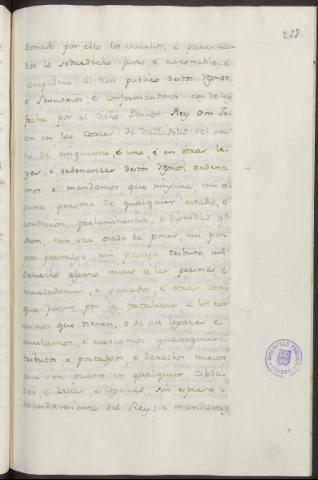 288
donado por ello los vasallos; é parecien-
donos lo sobredicho justo, é rasonable, é
cumplidero al bien publico destos Reynos,
é Sennorios; é conformandonos con la ley
fecha por el dicho Sennor Rey don Jo-
an en las Cortes de Valladolid del an-
no de cinquenta, é uno, é en otras le-
yes, é ordenanzas destos Reynos, ordena-
mos é mandamos que ninguna, nin al-
guna persona de qualquier estado, o
condicion, preheminencia, o dignidad que
sean, non sea osado de poner nin pon-
gan portadgo, nin pasage, tributo, nin
derecho alguno nuevo a las personas é
mercaderias, o ganados, é otras cosas
que pasaren por las fortalezas é los ter-
minos que tienen, o de sus logares é
anulamos, é revocamos qualesquiera
tributos é portadgos o derechos nuevos
que son puestos en qualquier cibda-
des é villas, é logares, sin espreso
mandamiento del Rey; é mandamos
BIBLIOTECA PUBLICA
TOLEDO